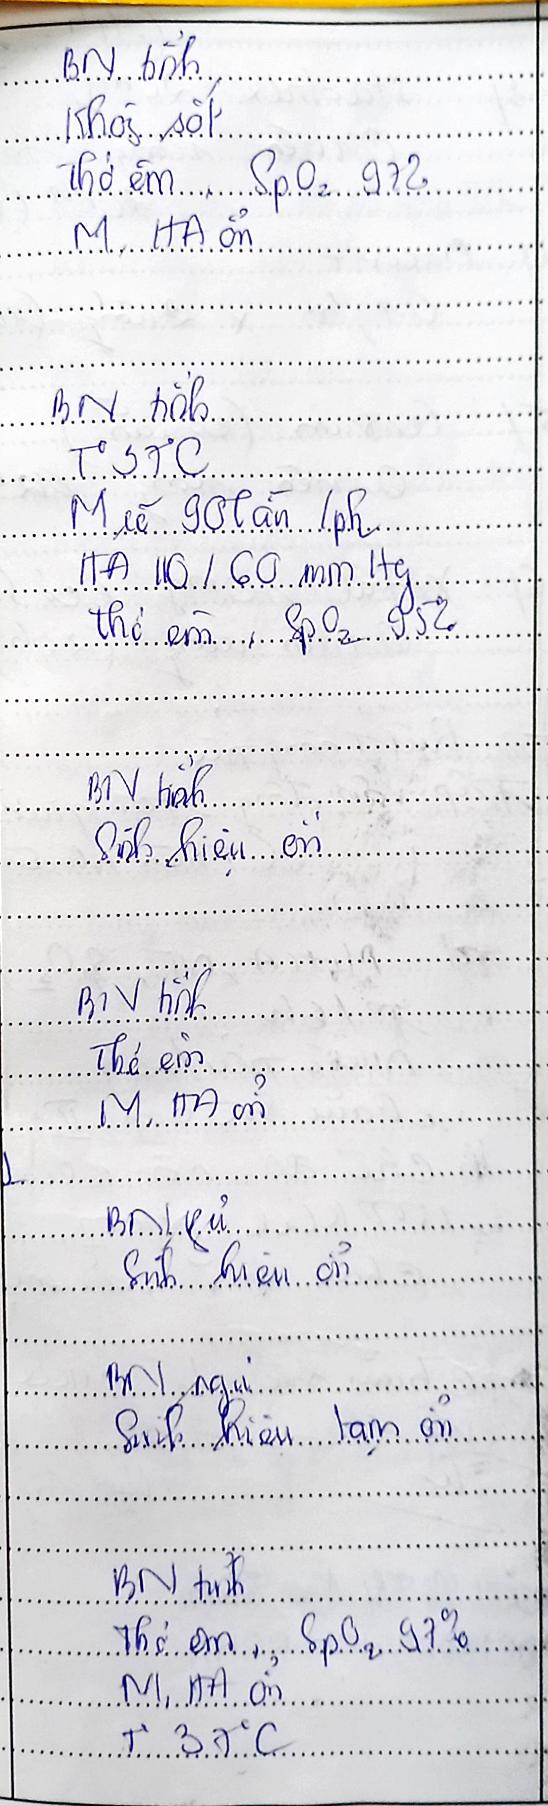 BN tỉnh
Không sốt
Thở êm, SpO₂ 97%
M, HA ổn
BN tỉnh
T° 37°C
M rõ 90 lần /ph
HA 110/60 mmHg
Thở êm, SpO₂ 95%
BN tỉnh
Sinh hiệu ổn
BN tỉnh
Thở êm
M, HA ổn
BN ngủ
Sinh hiệu ổn
BN ngủ
Sinh hiệu tạm ổn
BN tỉnh
Thở êm, SpO₂ 97%
M, HA ổn
T° 37°C